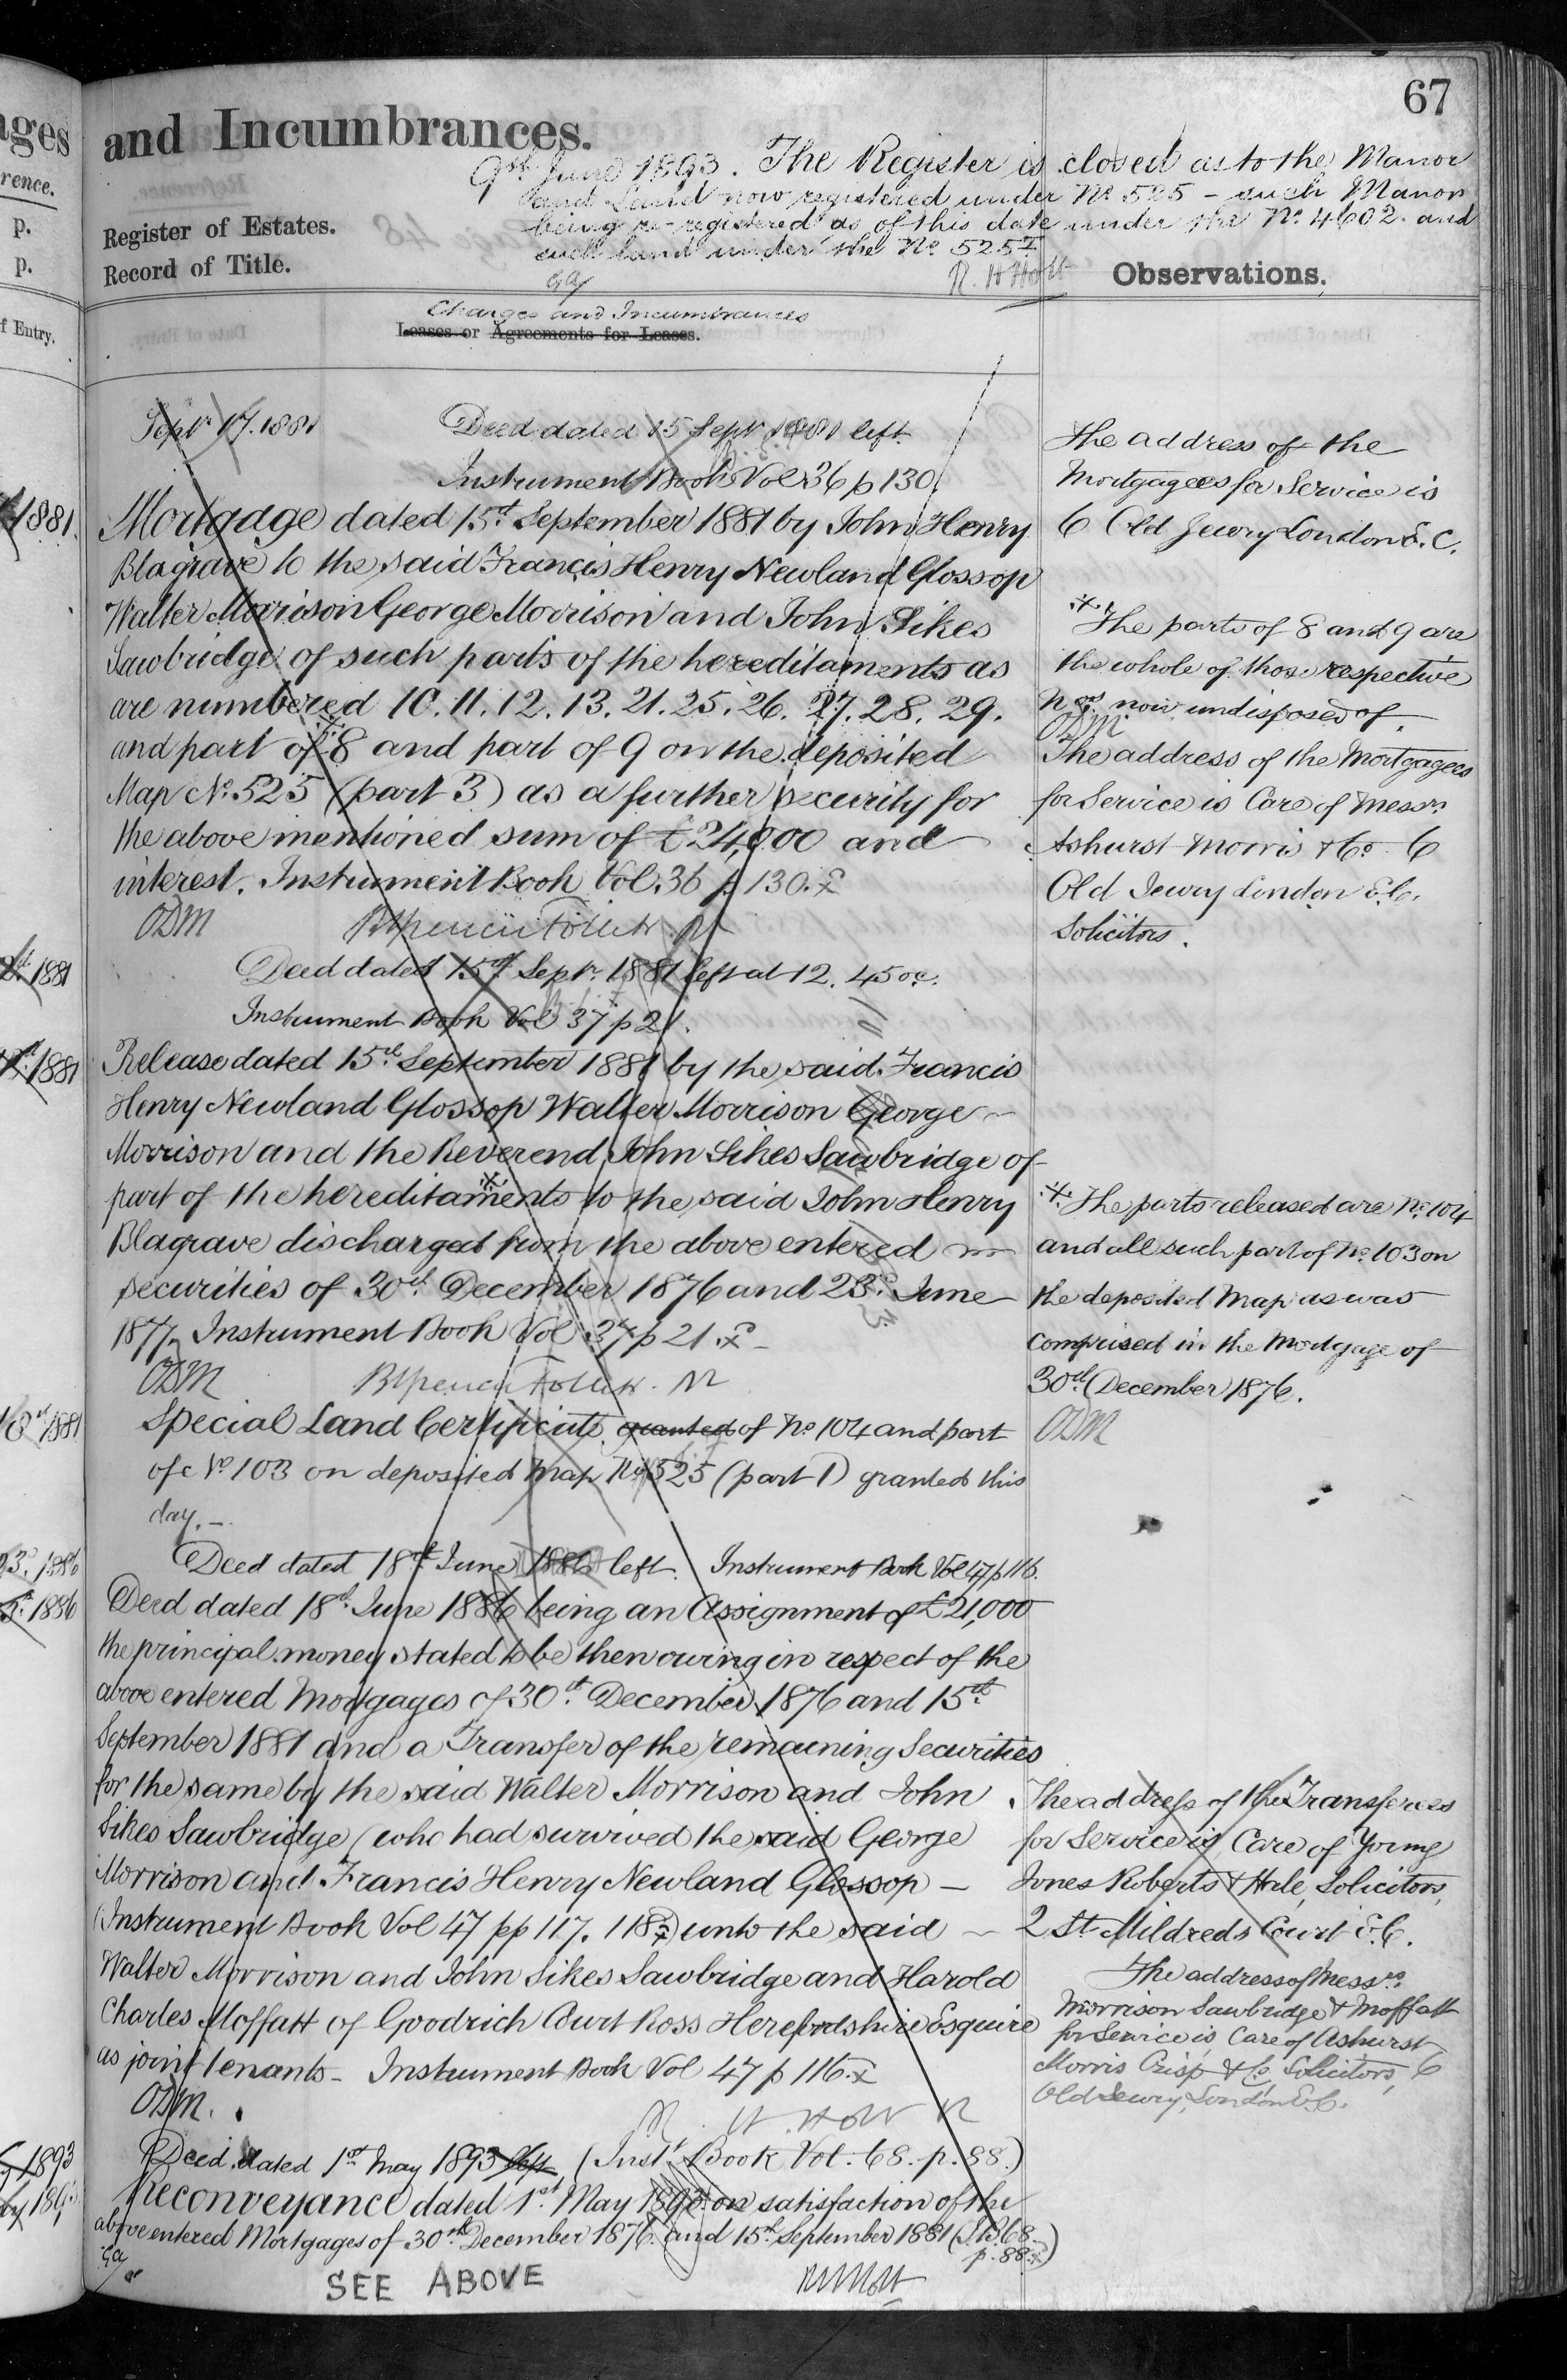 67
ages
rence.
p.
p.
f Entry.
and Incumbrances.
9th June 1893. The Register is closed as to the Manor
and Land now registered under No. 525 - such Manor
being re-registered as of this date under the No. 4602. and
such land under the No. 525
R. H. Holt
Register of Estates.
Record of Title.
Observations.
Charges and Incumbrances
Leases or Agreements for Leases.
Septr. 17. 1881
Deed dated 15 Septr 1881 left
Instrument Book Vol 36 p 130
1881.
Mortgage dated 15th September 1881 by John Henry
Blagrave to the said Francis Henry Newland Glossop
Walter Morrison George Morrison and John Sikes
Sawbridge of such parts of the hereditaments as
are numbered 10. 11. 12. 13. 21. 25. 26. 27. 28. 29.
and part of 8 and part of 9 on the deposited
Map No. 525 (part 3) as a further security for
the above mentioned sum of £24,000 and
interest. Instrument Book Vol. 36 p 130.
ODM
1881
Deed dated 15th Septr. 1881 left at 12. 45 oc.
Instrument Book Vol 37 p 21.
1881
Release dated 15th September 1881 by the said Francis
Henry Newland Glossop Walter Morrison George
Morrison and the Reverend John Sikes Sawbridge of
part of the hereditaments to the said John Henry
Blagrave discharged from the above entered
securities of 30th December 1876 and 23rd June
1877. Instrument Book Vol 37 p 21.
ODM
1881
Special Land Certificate granted of No 104 and part
of No 103 on deposited Map No 525 (part 1) granted this
day.
1886
Deed dated 18th June 1886 left. Instrument Book Vol 47 p 116.
1886
Deed dated 18th June 1886 being an Assignment of £21,000
the principal money stated to be then owing in respect of the
above entered Mortgages of 30th December 1876 and 15th
September 1881 and a Transfer of the remaining Securities
for the same by the said Walter Morrison and John
Sikes Sawbridge (who had survived the said George
Morrison and Francis Henry Newland Glossop —
(Instrument Book Vol 47 pp 117. 118) unto the said
Walter Morrison and John Sikes Sawbridge and Harold
Charles Moffatt of Goodrich Court Ross Herefordshire Esquire
as joint tenants - Instrument Book Vol 47 p 116.
ODM.
R. H. Holt R
1893
Deed dated 1st May 1893 left (Inst. Book Vol. 68. p. 88.)
Reconveyance dated 1st May 1893 on satisfaction of the
above entered Mortgages of 30th December 1876 and 15th September 1881 (I.B. 68.
p. 88.)
SEE ABOVE
R H Holt
The address of the
Mortgagees for Service is
6 Old Jewry London E.C.
The parts of 8 and 9 are
the whole of those respective
Nos. now undisposed of.
ODM
The address of the Mortgagees
for Service is Care of Messrs.
Ashurst Morris & Co. 6
Old Jewry London E.C.
Solicitors.
The parts released are No. 104
and all such part of No. 103 on
the deposited Map as was
comprised in the Mortgage of
30th December 1876.
ODM
The address of the Transferees
for Service is Care of Young
Jones Roberts & Hale, Solicitors,
2 St. Mildreds Court E.C.
The address of Messrs.
Morrison Sawbridge & Moffatt
for Service is Care of Ashurst
Morris Crisp & Co. Solicitors, 6
Old Jewry, London E.C.